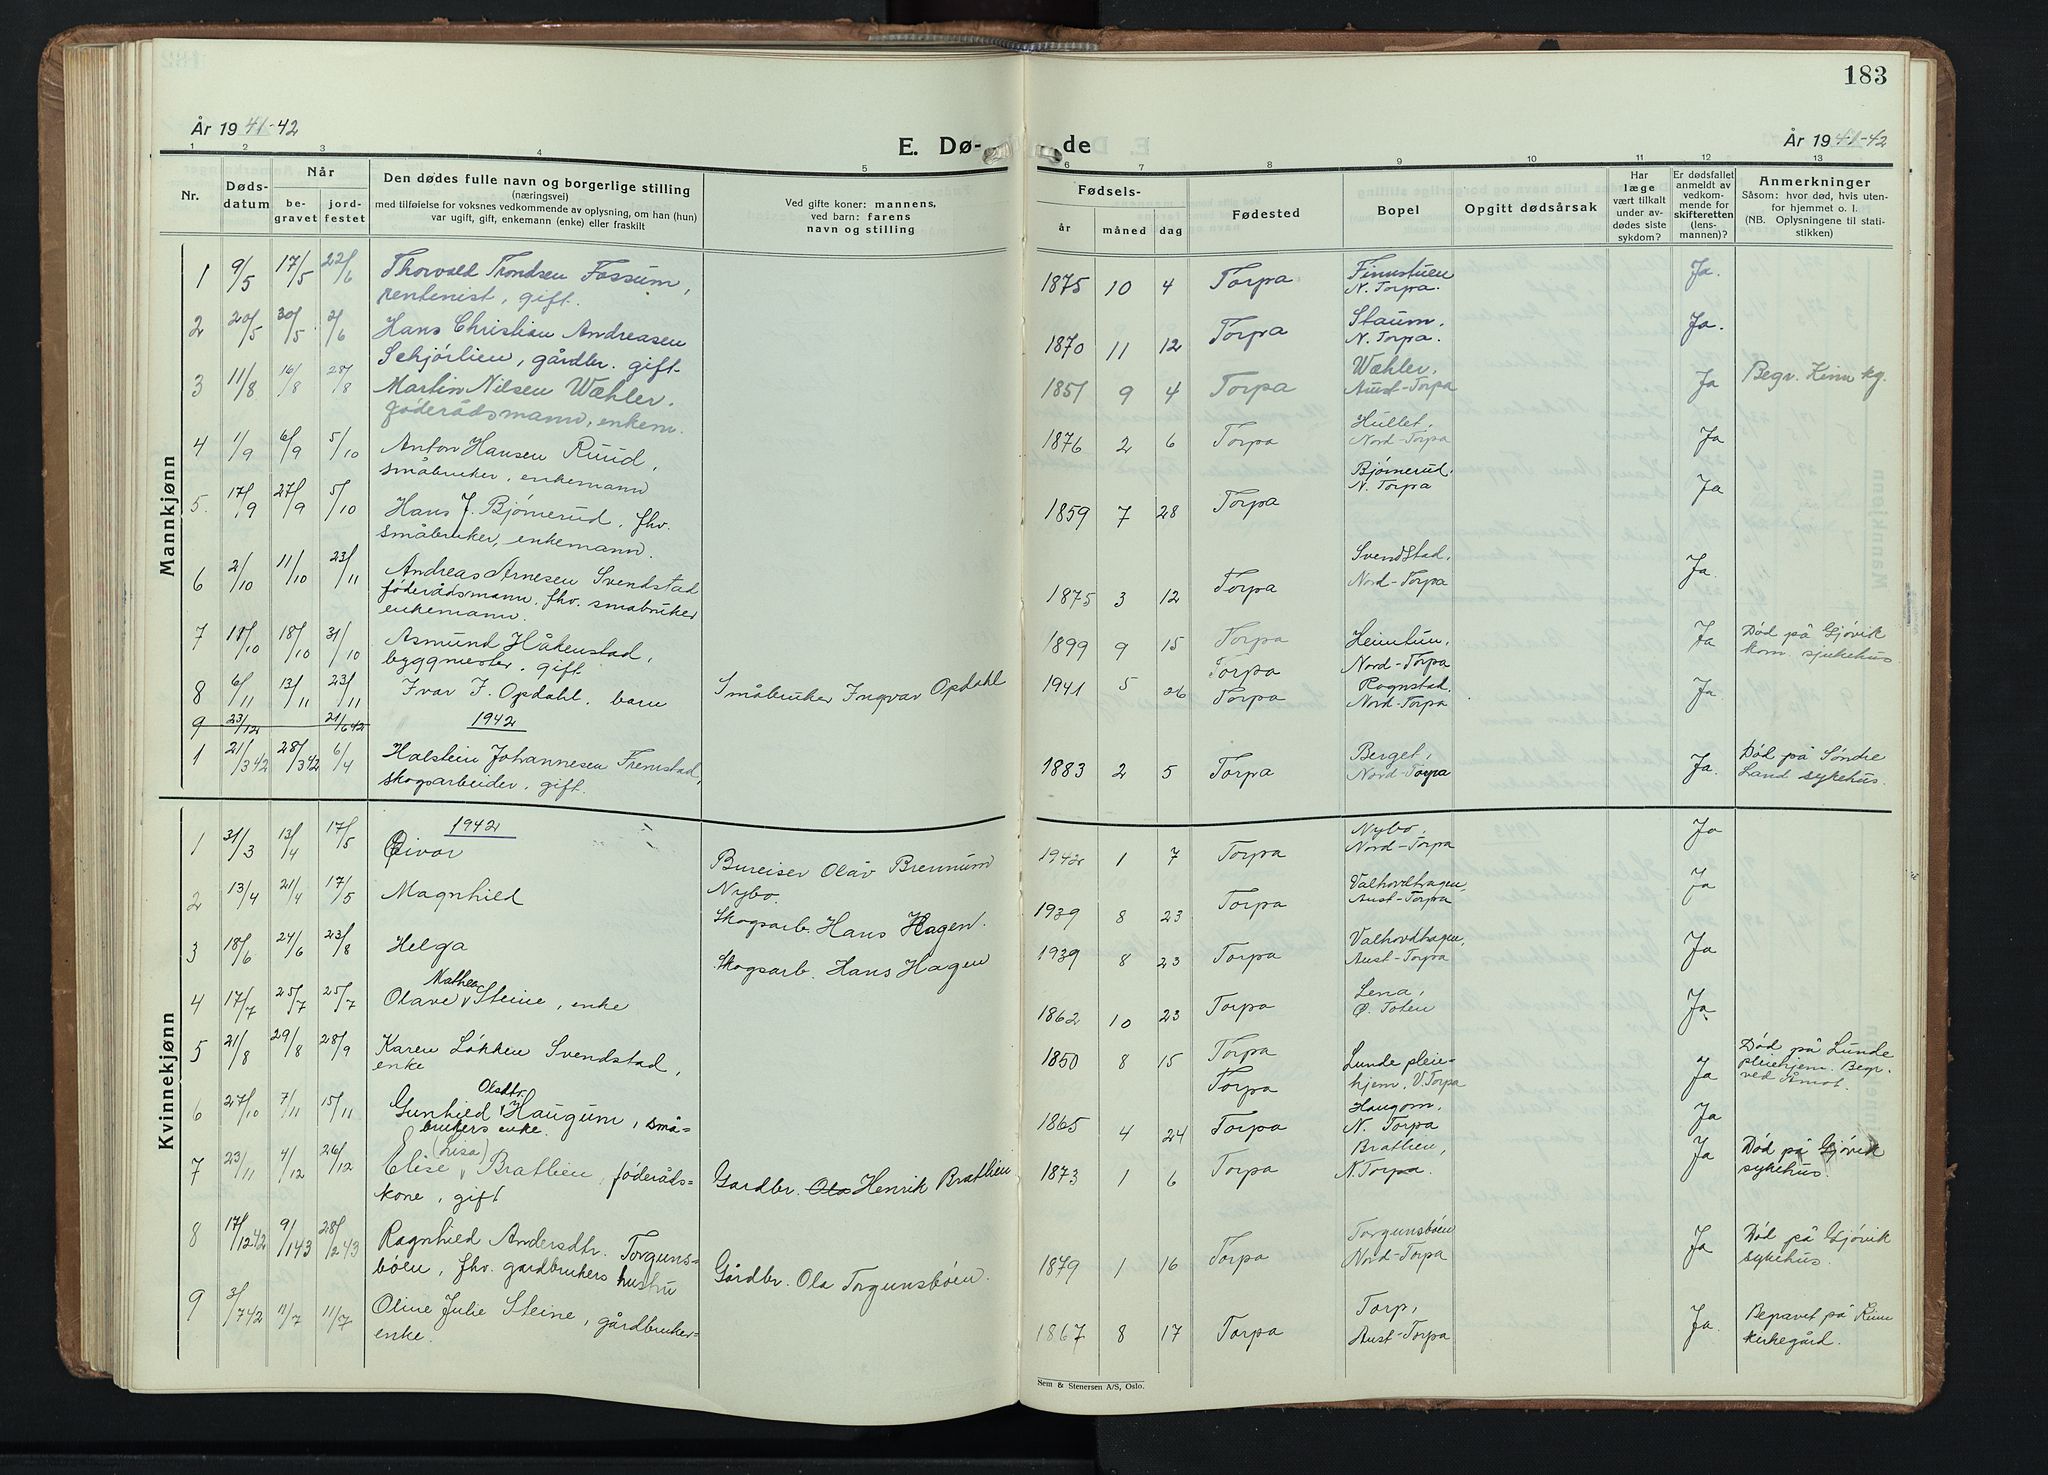 183
År 1941-42
E. Dø-
de
År 1941-42
1 2 3 4 5 6 7 8 9 10 11 12 13
Nr.
Døds-
datum
Når
be-
gravet
jord-
festet
Den dødes fulle navn og borgerlige stilling
(næringsvei)
med tilføielse for voksnes vedkommende av oplysning, om han (hun)
var ugift, gift, enkemann (enke) eller fraskilt
Ved gifte koner: mannens,
ved barn: farens
navn og stilling
Fødsels-
år måned dag
Fødested
Bopel
Opgitt dødsårsak
Har
læge
vært tilkalt
under av-
dødes siste
sykdom?
Er dødsfallet
anmeldt av
vedkom-
mende for
skifteretten
(lens-
mannen)?
Anmerkninger
Såsom: hvor død, hvis uten-
for hjemmet o. l.
(NB. Oplysningene til stati-
stikken)
Mannkjønn
1 9/5 17/5 22/6 Thorvald Trondsen Fossum, 1875 10 4 Torpa Finnstuen Ja.
rentenist, gift. N. Torpa.
2 20/5 30/5 2/6 Hans Christian Andreasen 1870 11 12 Torpa Staum, Ja.
Schjørlien, gårdbr. gift. N. Torpa.
3 11/8 16/8 28/8 Martin Nilsen Wæhler, 1851 9 4 Torpa Wæhler, Ja Begr. Kinn kg.
føderådsmann, enkem. Aust-Torpa
4 1/9 6/9 5/10 Anton Hansen Ruud, 1876 2 6 Torpa Hullet, Ja
småbruker, enkemann Nord-Torpa
5. 17/9 27/9 5/10 Hans J. Bjørnerud, fhv. 1859 7 28 Torpa Bjørnerud, Ja
småbruker, enkemann. N. Torpa
6 2/10 11/10 23/11 Andreas Arnesen Svendstad 1875 3 12 Torpa Svendstad, Ja.
føderådsmann, fhv. småbruker Nord-Torpa
enkemann.
7 18/10 31/10 Asmund Håkenstad, 1899 9 15 Torpa Heimtun, Ja Død på Gjøvik
byggmester, gift Torpa Nord-Torpa kom. sjukehus.
8 6/11 13/11 23/11 Ivar I. Opdahl, barn Småbruker Ingvar Opdahl 1941 5 26 Torpa Rognstad, Ja
Nord-Torpa
9 23/12 21/6 42 1942
1 21/3 42 28/3 42 6/4 Halstein Johannesen Fremstad, 1883 2 5 Torpa Berget, Ja. Død på Søndre
skogsarbeider, gift. Nord-Torpa Land sykehus.
Kvinnekjønn
1942
1 31/3 13/4 17/5 Eivor Bureiser Olav Brennum 1942 1 7 Torpa Nybo, Ja
Nybo. Nord-Torpa
2 13/4 21/4 17/5 Magnhild Skogsarb. Hans Hagen. 1939 8 23 Torpa Valhovdhagen, Ja
Aust-Torpa
3 18/6 24/6 23/8 Helga Skogsarb. Hans Hagen 1939 8 23 Torpa Valhovdhagen, Ja
Aust-Torpa
Mathea
4 17/7 25/7 25/7 Olave Steine, enke 1862 10 23 Torpa Lena, Ja
Ø. Toten
5 21/8 29/8 28/9 Karen Løkken Svendstad, 1850 8 15 Torpa Lunde pleie- Ja Død på Lunde
enke Torpa hjem, V. Torpa pleiehjem. Begr.
ved Åmot.
Olsdtr.
6 27/10 7/11 15/11 Gunhild Haugum, små- 1865 4 24 Torpa Haugom, Ja
brukers enke. N. Torpa
(Lisa)
7 23/11 4/12 26/12 Elise Brathien, føderåds- Gardbr. Ola Henrik Brathien 1873 1 6 Torpa Brathien, Ja Død på Gjøvik
kone, gift N. Torpa. sykehus.
8 17/12 42 9/1 43 28/2 43 Ragnhild Andersdtr. Torguns- Gårdbr. Ola Torgunsbøen. 1879 1 16 Torpa Torgunsbøen Ja Død på Gjøvik
bøen, fhv. gardbrukers hustru Nord-Torpa sykehus.
9 3/7 42 11/7 11/7 Oline Julie Steine, gårdbruker- 1867 8 17 Torpa Torp, Ja. Begravet på Kinn
enke. Aust-Torpa kirkegård.
Sem & Stenersen A/S, Oslo.